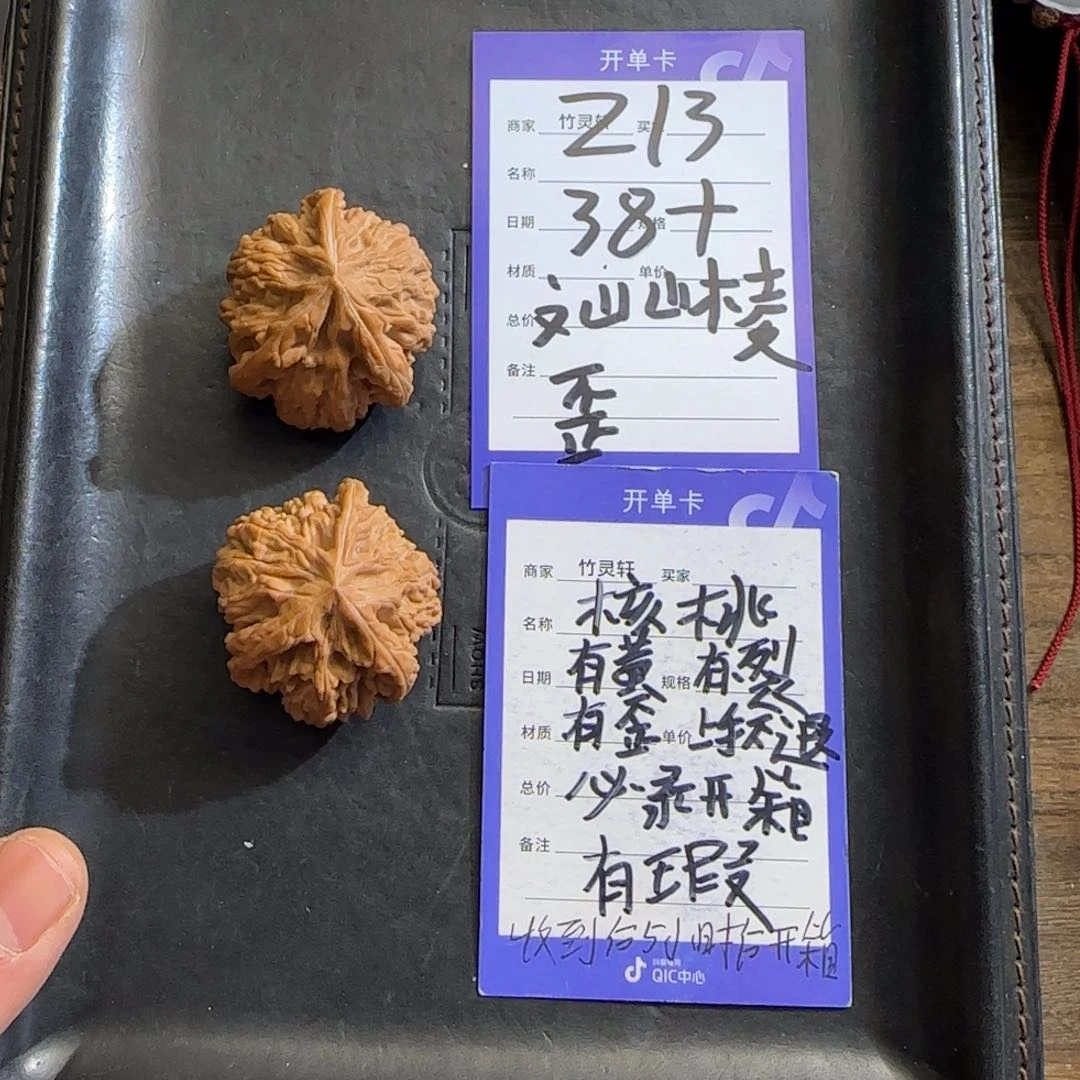 开单卡
商家 竹灵轩 买
213
名称
日期 规格
38+
材质 单价
文山山棱
总价
备注
歪
开单卡
商家 竹灵轩 买家
名称
核桃
日期 规格
有黄 有裂
材质 单价
有歪 退
总价
必录开箱
备注
有瑕
收到后 时后开箱
抖音电商
QIC中心
MORE